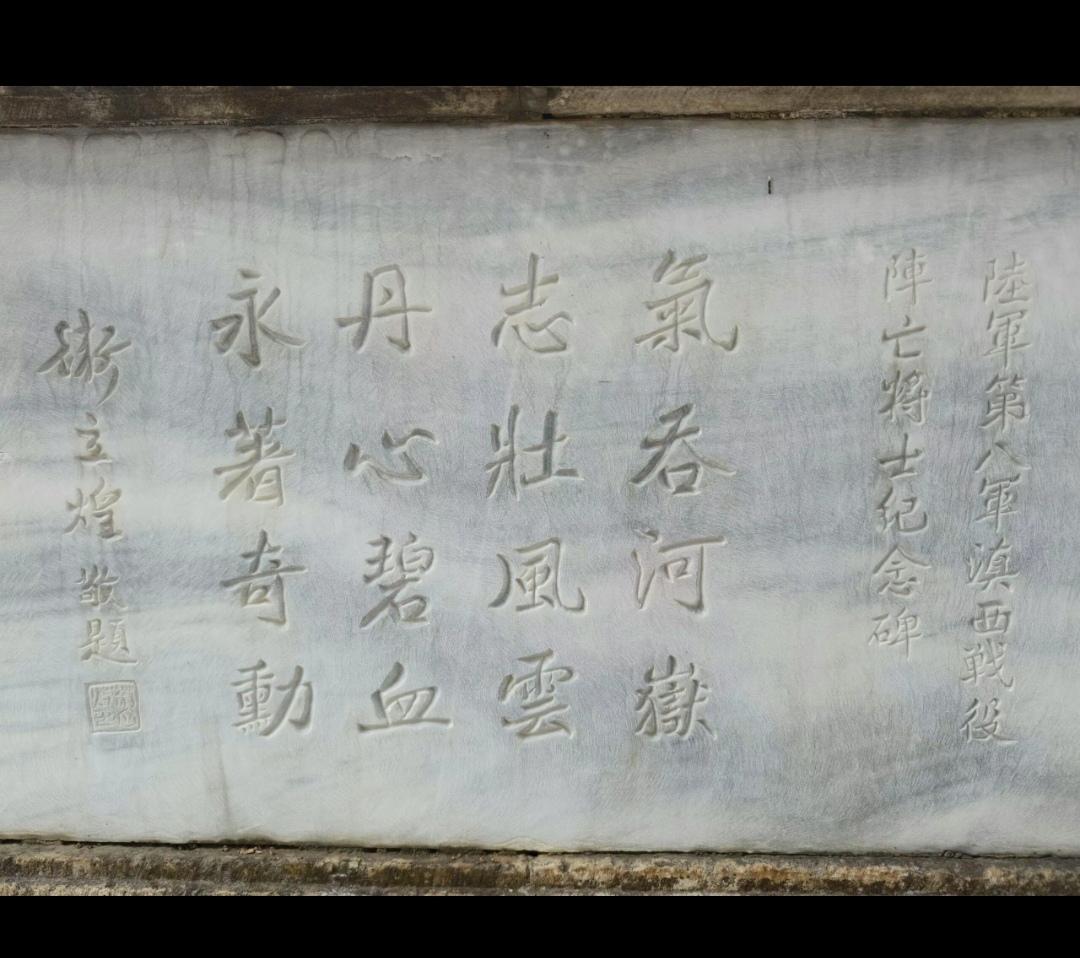 陸軍第八軍滇西戰役
陣亡將士紀念碑
氣吞河嶽
志壯風雲
丹心碧血
永著奇勳
衛立煌敬題